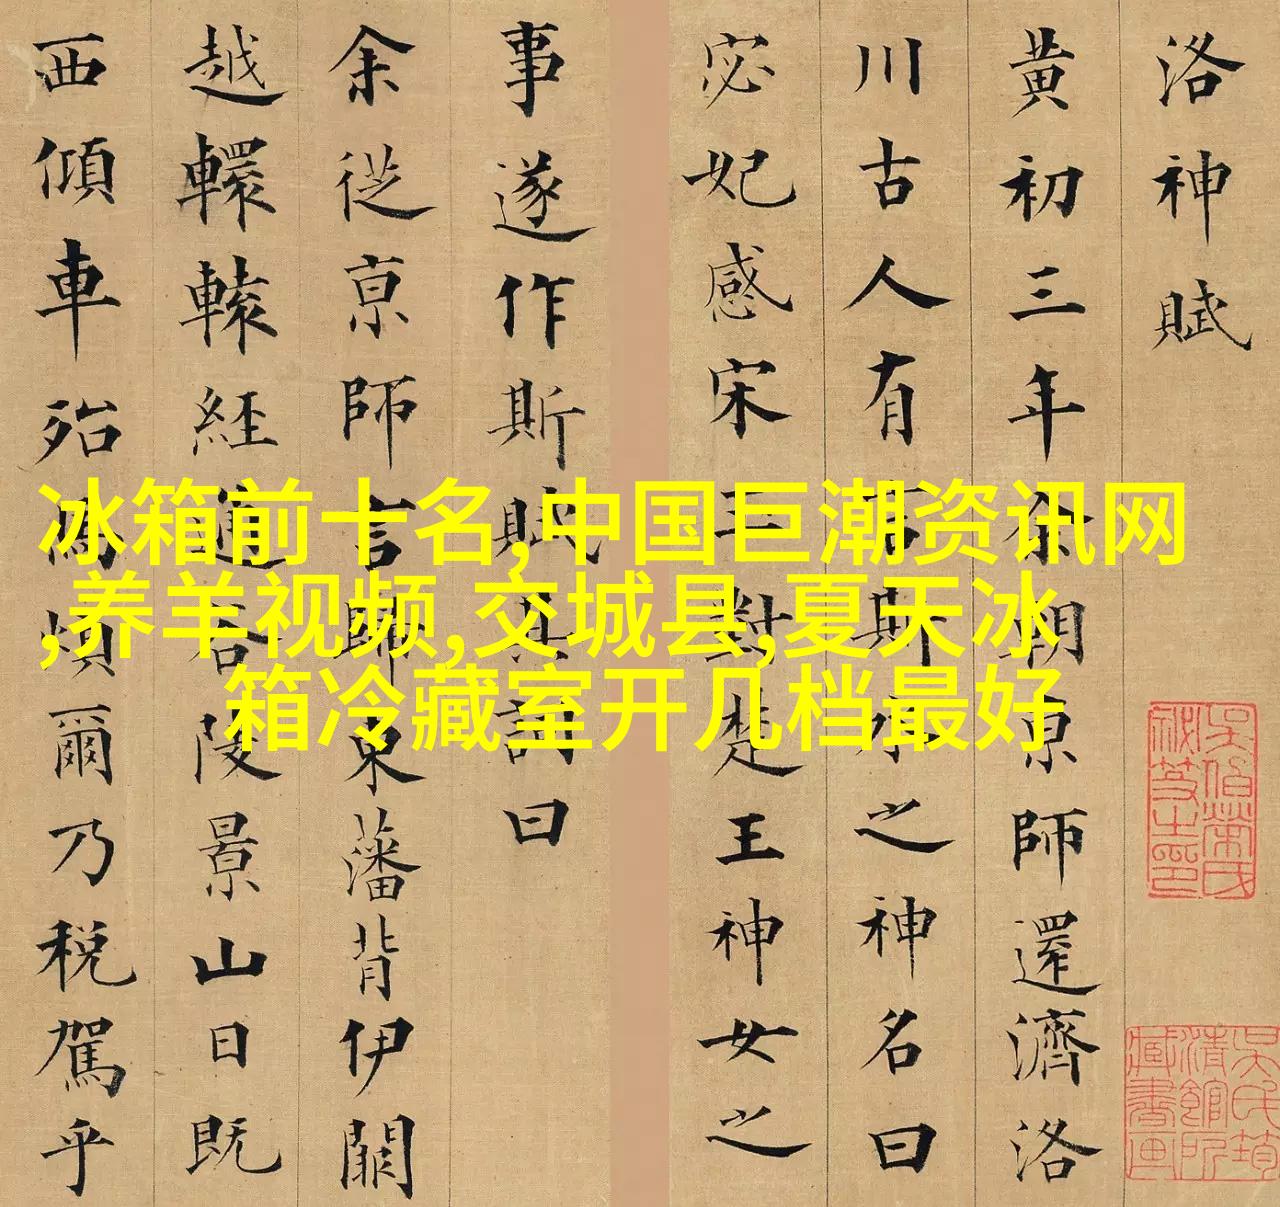 洛神賦
黄初三年余朝京師還濟洛
川古人有言斯水之神名曰
宓妃感宋玉對楚王神女之
事遂作斯賦其詞曰
余從京師言歸東藩背伊闕
越轘轅經通谷陵景山日既
西傾車殆馬煩爾乃税駕乎
冰箱前十名,中国巨潮资讯网
,养羊视频,交城县,夏天冰
箱冷藏室开几档最好
吳氏筠
清館所
藏書画